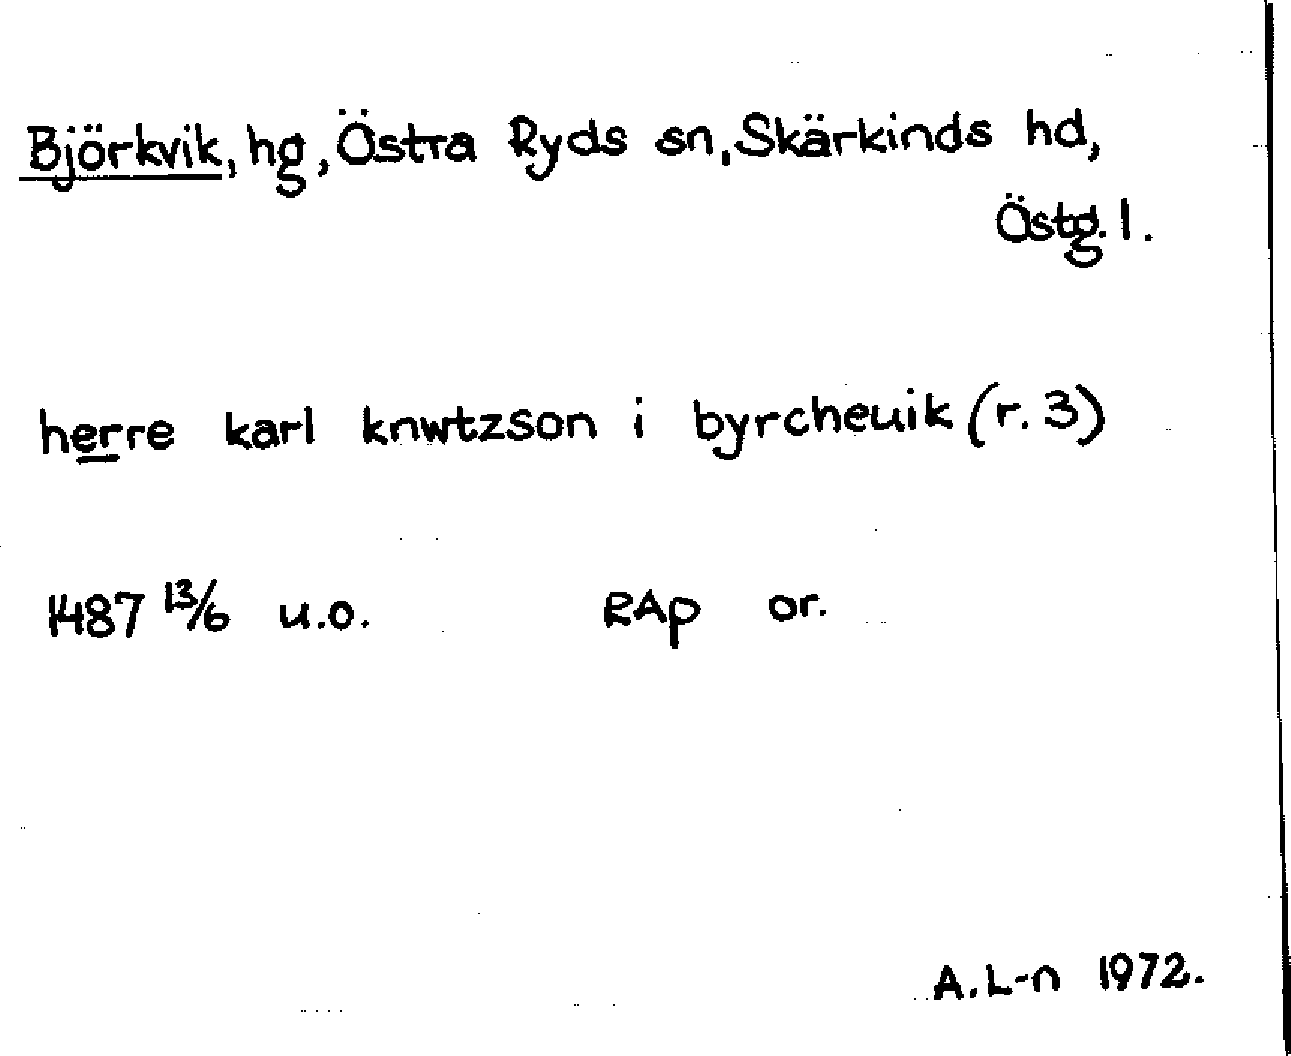 Björkvik, hg, Östra Ryds sn, Skärkinds hd,
Östg. l.
herre karl knwtzson i byrcheuik (r. 3)
1487 13/6 u.o. RAp or.
A. L-n 1972.